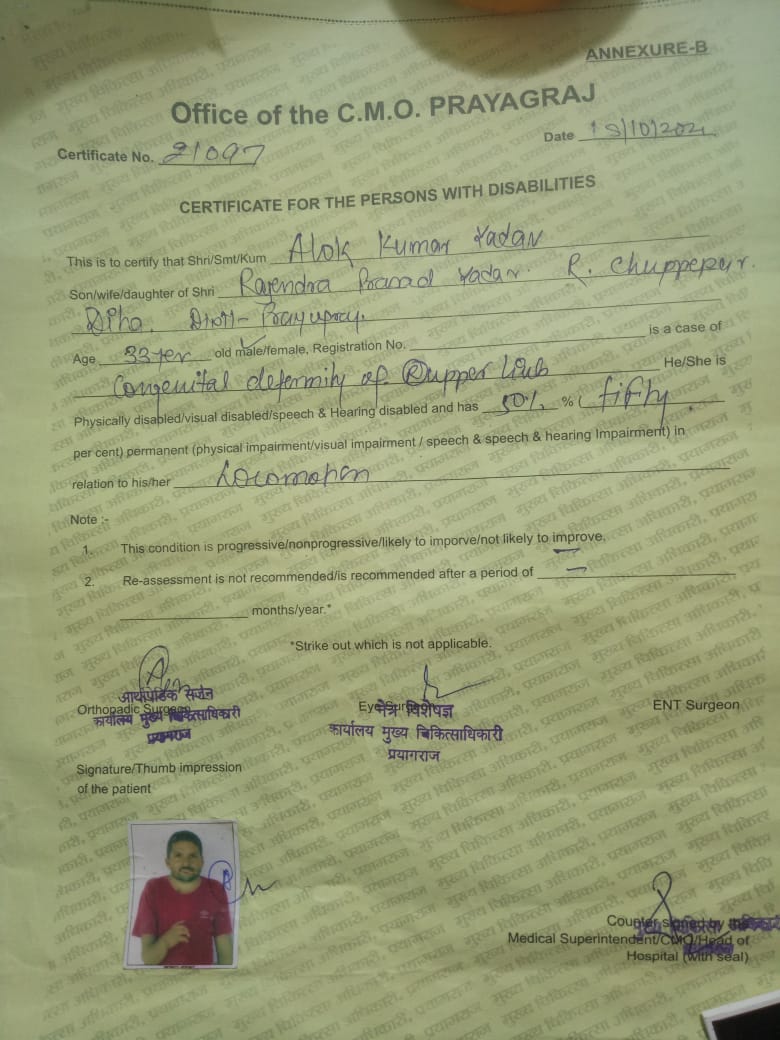 ANNEXURE-B
Office of the C.M.O. PRAYAGRAJ
Certificate No. 21097
Date
CERTIFICATE FOR THE PERSONS WITH DISABILITIES
This is to certify that Shri/Smt/Kum Alok Kumar Yadav
Son/wife/daughter of Shri Rajendra Prasad Yadav. R.
Age 33 yer old male/female, Registration No. is a case of
Congenital deformity of (R) upper limb He/She is
Physically disabled/visual disabled/speech & Hearing disabled and has 50% % ( fifty
per cent) permanent (physical impairment/visual impairment / speech & speech & hearing Impairment) in
relation to his/her
Note :-
1. This condition is progressive/nonprogressive/likely to imporve/not likely to improve.
2. Re-assessment is not recommended/is recommended after a period of
months/year.*
*Strike out which is not applicable.
आर्थोपेडिक सर्जन
Orthopadic Surgeon
कार्यालय मुख्य चिकित्साधिकारी
प्रयागराज
Eye Surgeon
नेत्र विशेषज्ञ
कार्यालय मुख्य चिकित्साधिकारी
प्रयागराज
ENT Surgeon
Signature/Thumb impression
of the patient
Counter signed by the
Medical Superintendent/CMO/Head of
Hospital (with seal)
मुख्य चिकित्सा अधिकारी, प्रयागराज